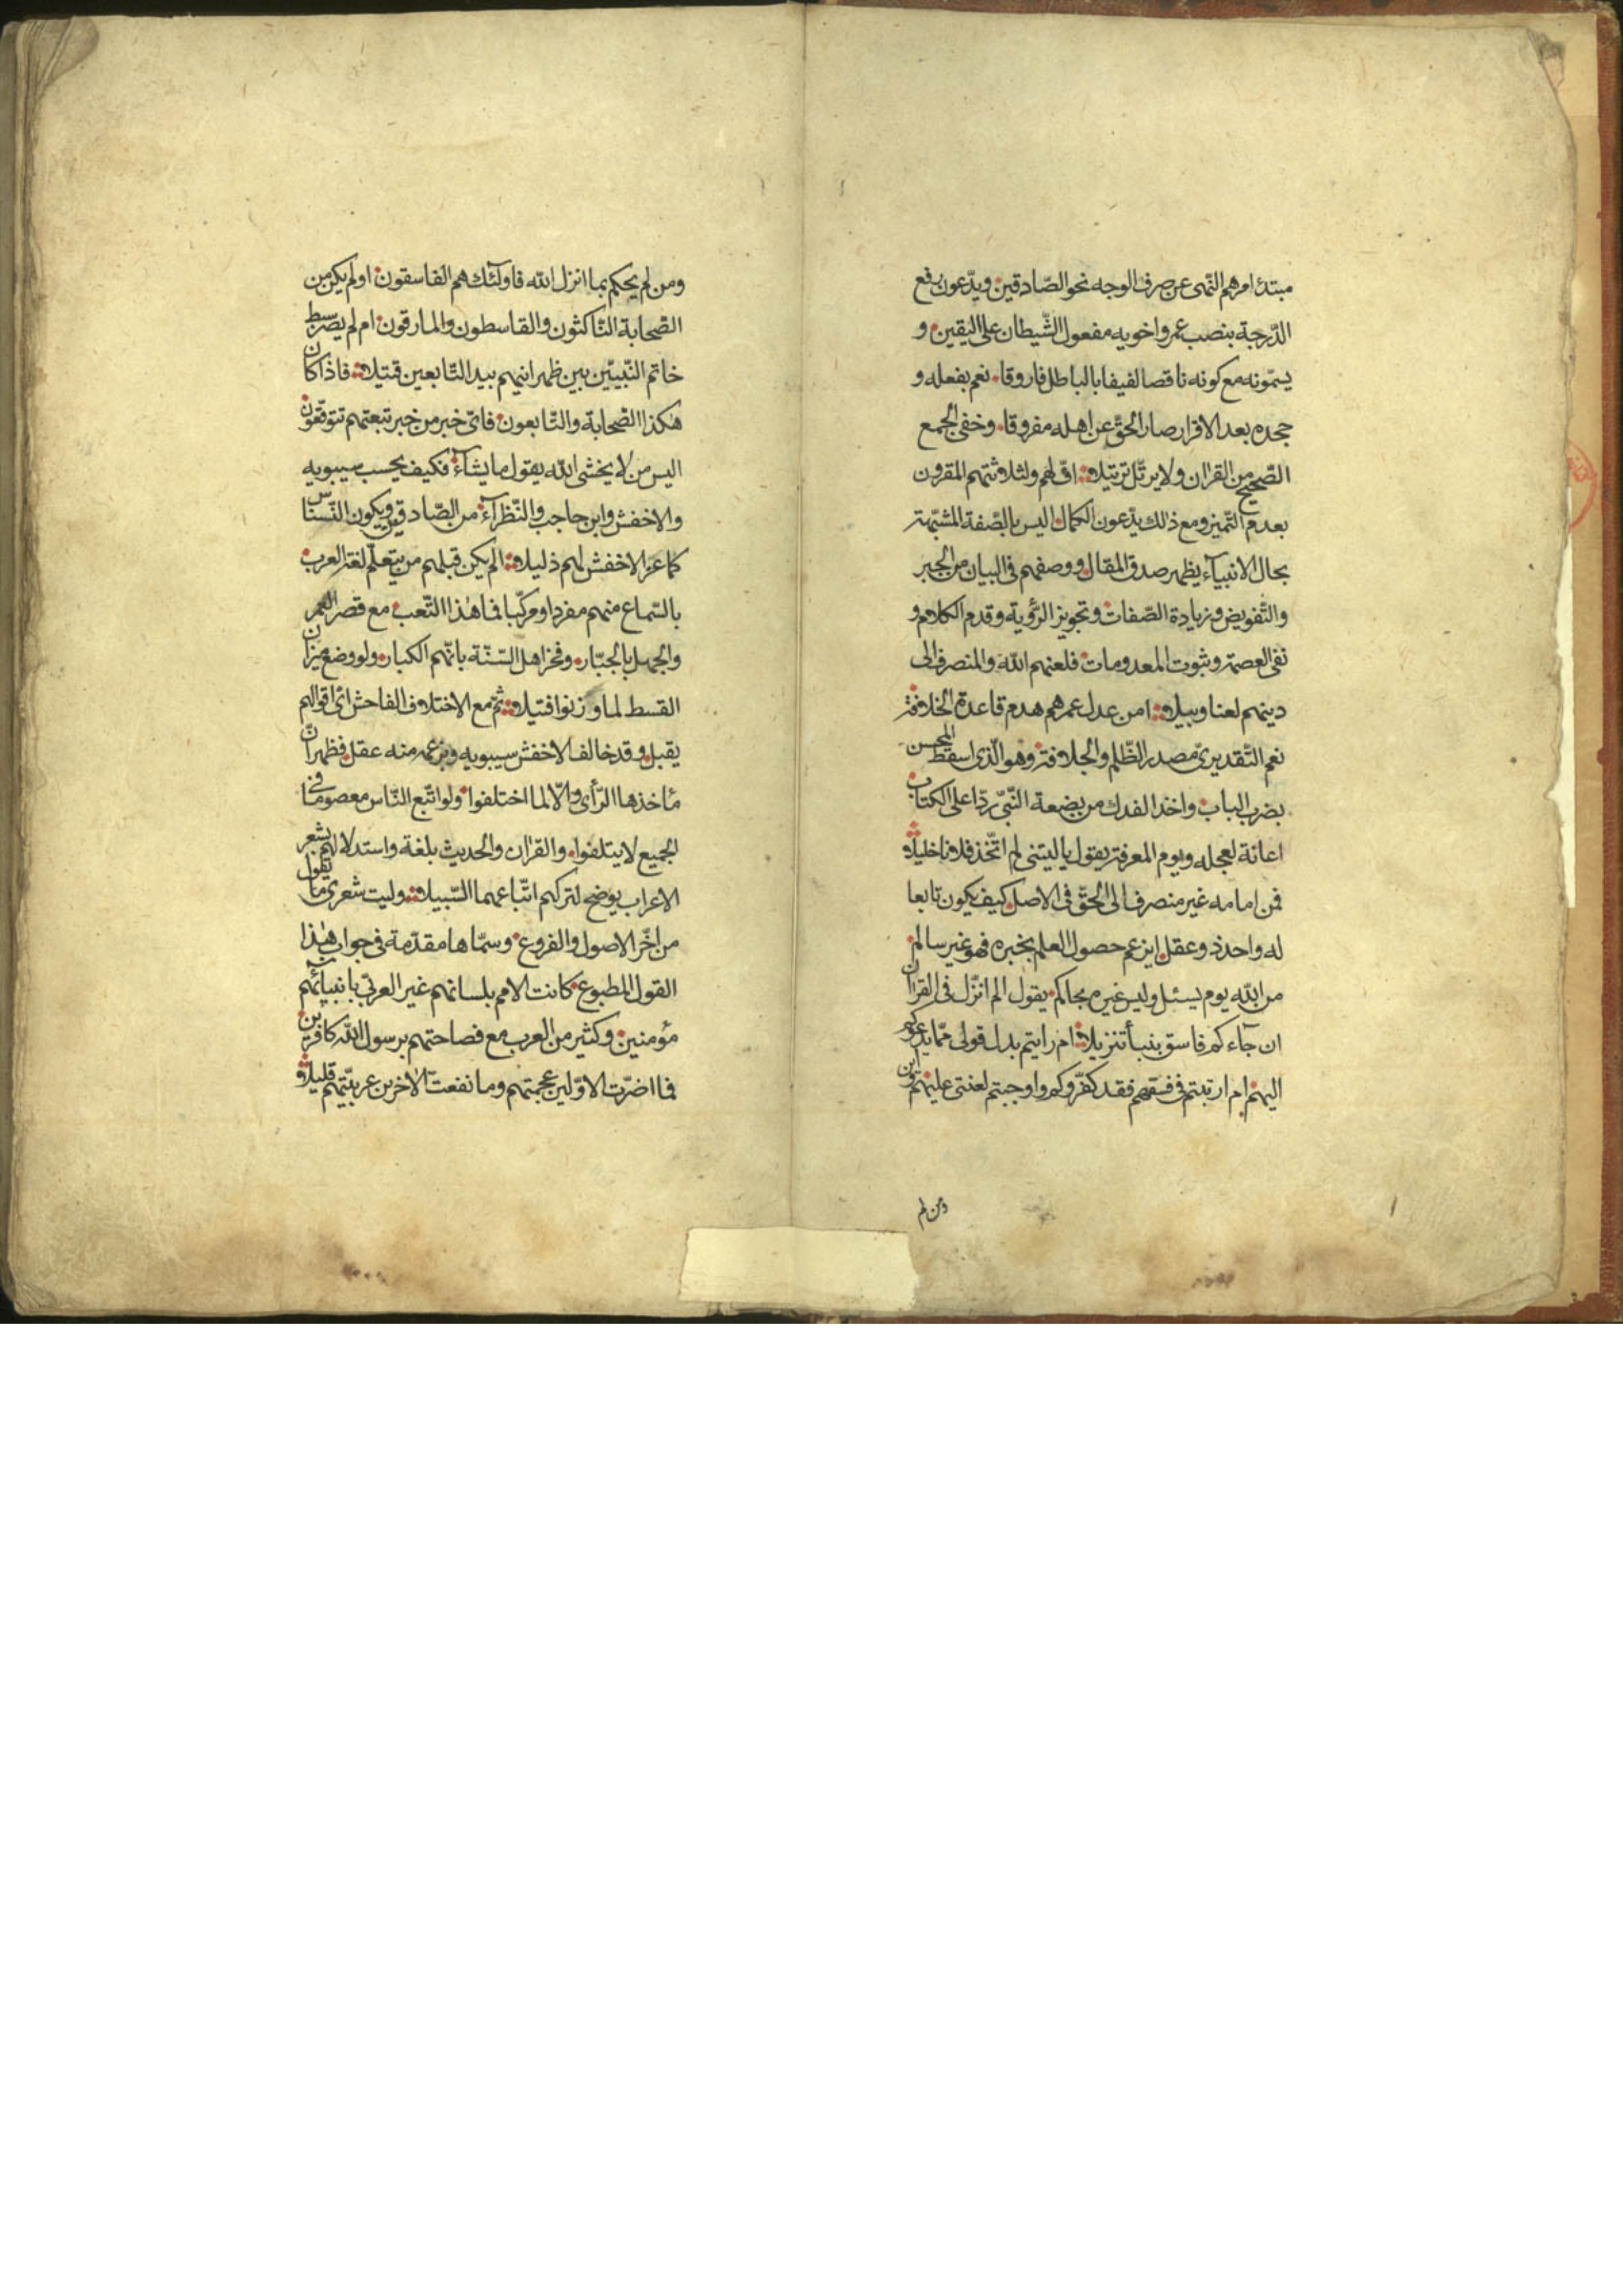 مبتدئ امرهم التمى عن صرف الوجه نحو الصّادقين ويدّعون رفع
الدّرجة بنصب عمر واخويه مفعول الشّيطان على اليقين و
يسمّونه مع كونه ناقصا لفيفا بالباطل فاروقا نعم بفعله و
جحده بعد الاقرار صار الحقّ عن اهله مفروقا وخفى الجمع
الصّحيح من القران ولا يرتّل ترتيلا افّ لهم ولثلاثتهم المقرون
بعدم التّميز ومع ذلك يدّعون الكمال اليس بالصّفة المشبّهة
بحال الانبيآء يظهر صدق المقال ووصفهم فى البيان من الجبر
والتّفويض وزيادة الصّفات وتجويز الرّؤية وقدم الكلام و
نفى العصمة وثبوت المعدومات فلعنهم الله والمنصرف الى
دينهم لعنا وبيلا امن عدل عمرهم هدم قاعدة الخلافة
نعم التّقديرىّ مصدر الظّلم والجلافة وهو الّذى اسقط المحسن
بضرب الباب واخذ الفدك من بضعة النّبىّ ردّا على الكتاب
اعانة لعجله ويوم المعرفة يقول ياليتنى لم اتّخذ فلانا خليلا
فمن امامه غير منصرف الى الحقّ فى الاصل كيف يكون تابعا
له واحد ذو عقل ايزعم حصول العلم بخبره فهو غير سالم
من الله يوم يسئل وليس غيره بحاكم يقول الم انزّل فى القران
ان جآءكم فاسق بنبأ تنزيلا ام رايتم بدل قولى ممّا يدعوكم
اليهم ام ارتبتم فى فسقهم فقد كفّروكم واوجبتم لعنتى عليهم
ومن لم
ومن لم يحكم بما انزل الله فاولئك هم الفاسقون اولم يكن من
الصّحابة النّاكثون والقاسطون والمارقون ام لم يصر سبط
خاتم النّبيّين بين ظهرانيهم بيد التّابعين قتيلا فاذا كان
هكذا الصّحابة والتّابعون فاىّ خبر من خبر تبعتهم تتوقّعون
اليس من لا يخشى الله يقول ما يشآء فكيف يحسب سيبويه
والاخفش وابن حاجب والنّظرآء من الصّادقين ويكون النّسناس
كما عزّ الاخفش لهم ذليلا الم يكن قبلهم من يتعلّم لغة العرب
بالسّماع منهم مفردا ومركّبا فما هذا التّعب مع قصر العمر
والجهل بالجبّار وفخر اهل السّنّة بانّهم الكبار ولو وضع ميزان
القسط لما وزنوا فتيلا ثمّ مع الاختلاف الفاحش اىّ اقوالهم
يقبل وقد خالف الاخفش سيبويه وبزعمه منه عقل فظهر انّ
مأخذها الرّأى والّا لما اختلفوا ولو اتّبع النّاس معصوما فى
الجميع لا يتلفوا والقران والحديث بلغة واستدلالهم بشعر
الاعراب يوضح لتركهم اتّباعهما السّبيلا وليت شعرى ما يقول
من اخّر الاصول والفروع وسمّاها مقدّمة فى جواب هذا
القول المطبوع كانت الامم بلسانهم غير العربىّ بانبيآئهم
مؤمنين وكثير من العرب مع فصاحتهم برسول الله كافرين
فما اضرّت الاوّلين عجمتهم وما نفعت الاخرين عربيّتهم قليلا